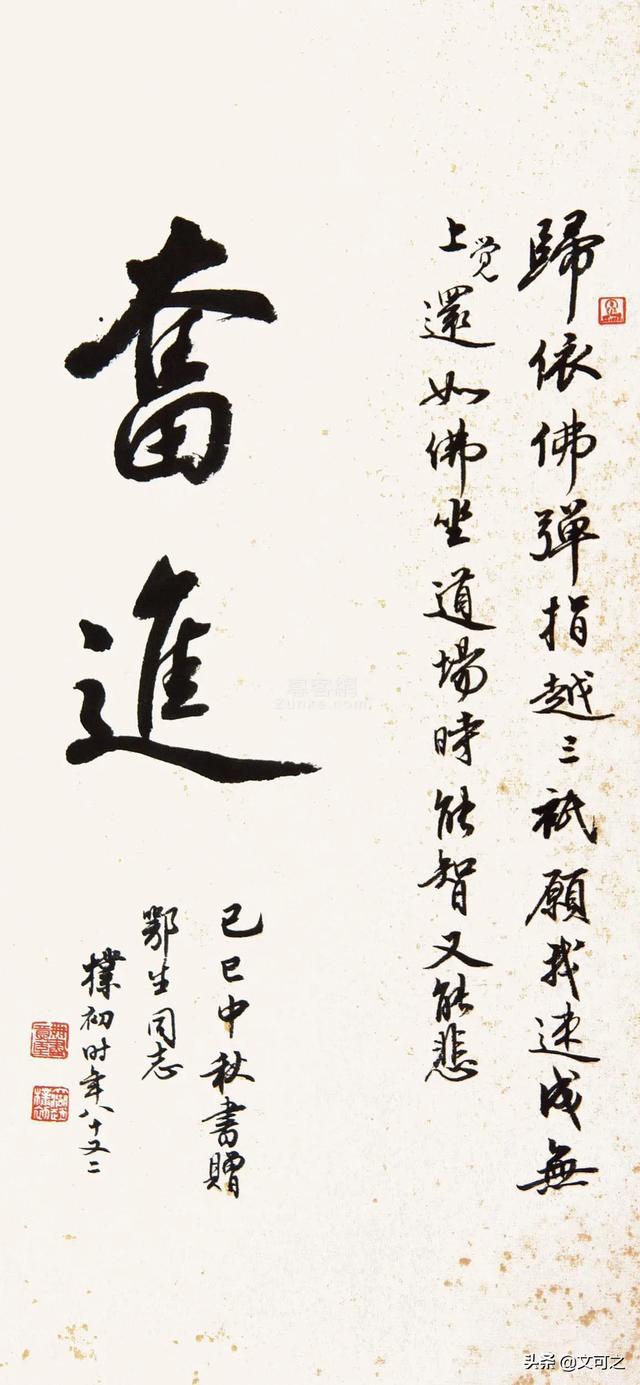 歸依佛彈指越三祇願我速成無
上覺還如佛坐道場時能智又能悲
奮進
己巳中秋書贈
鄂生同志
樸初时年八十又二
尊客網
Zunke.com
头条 @文可之